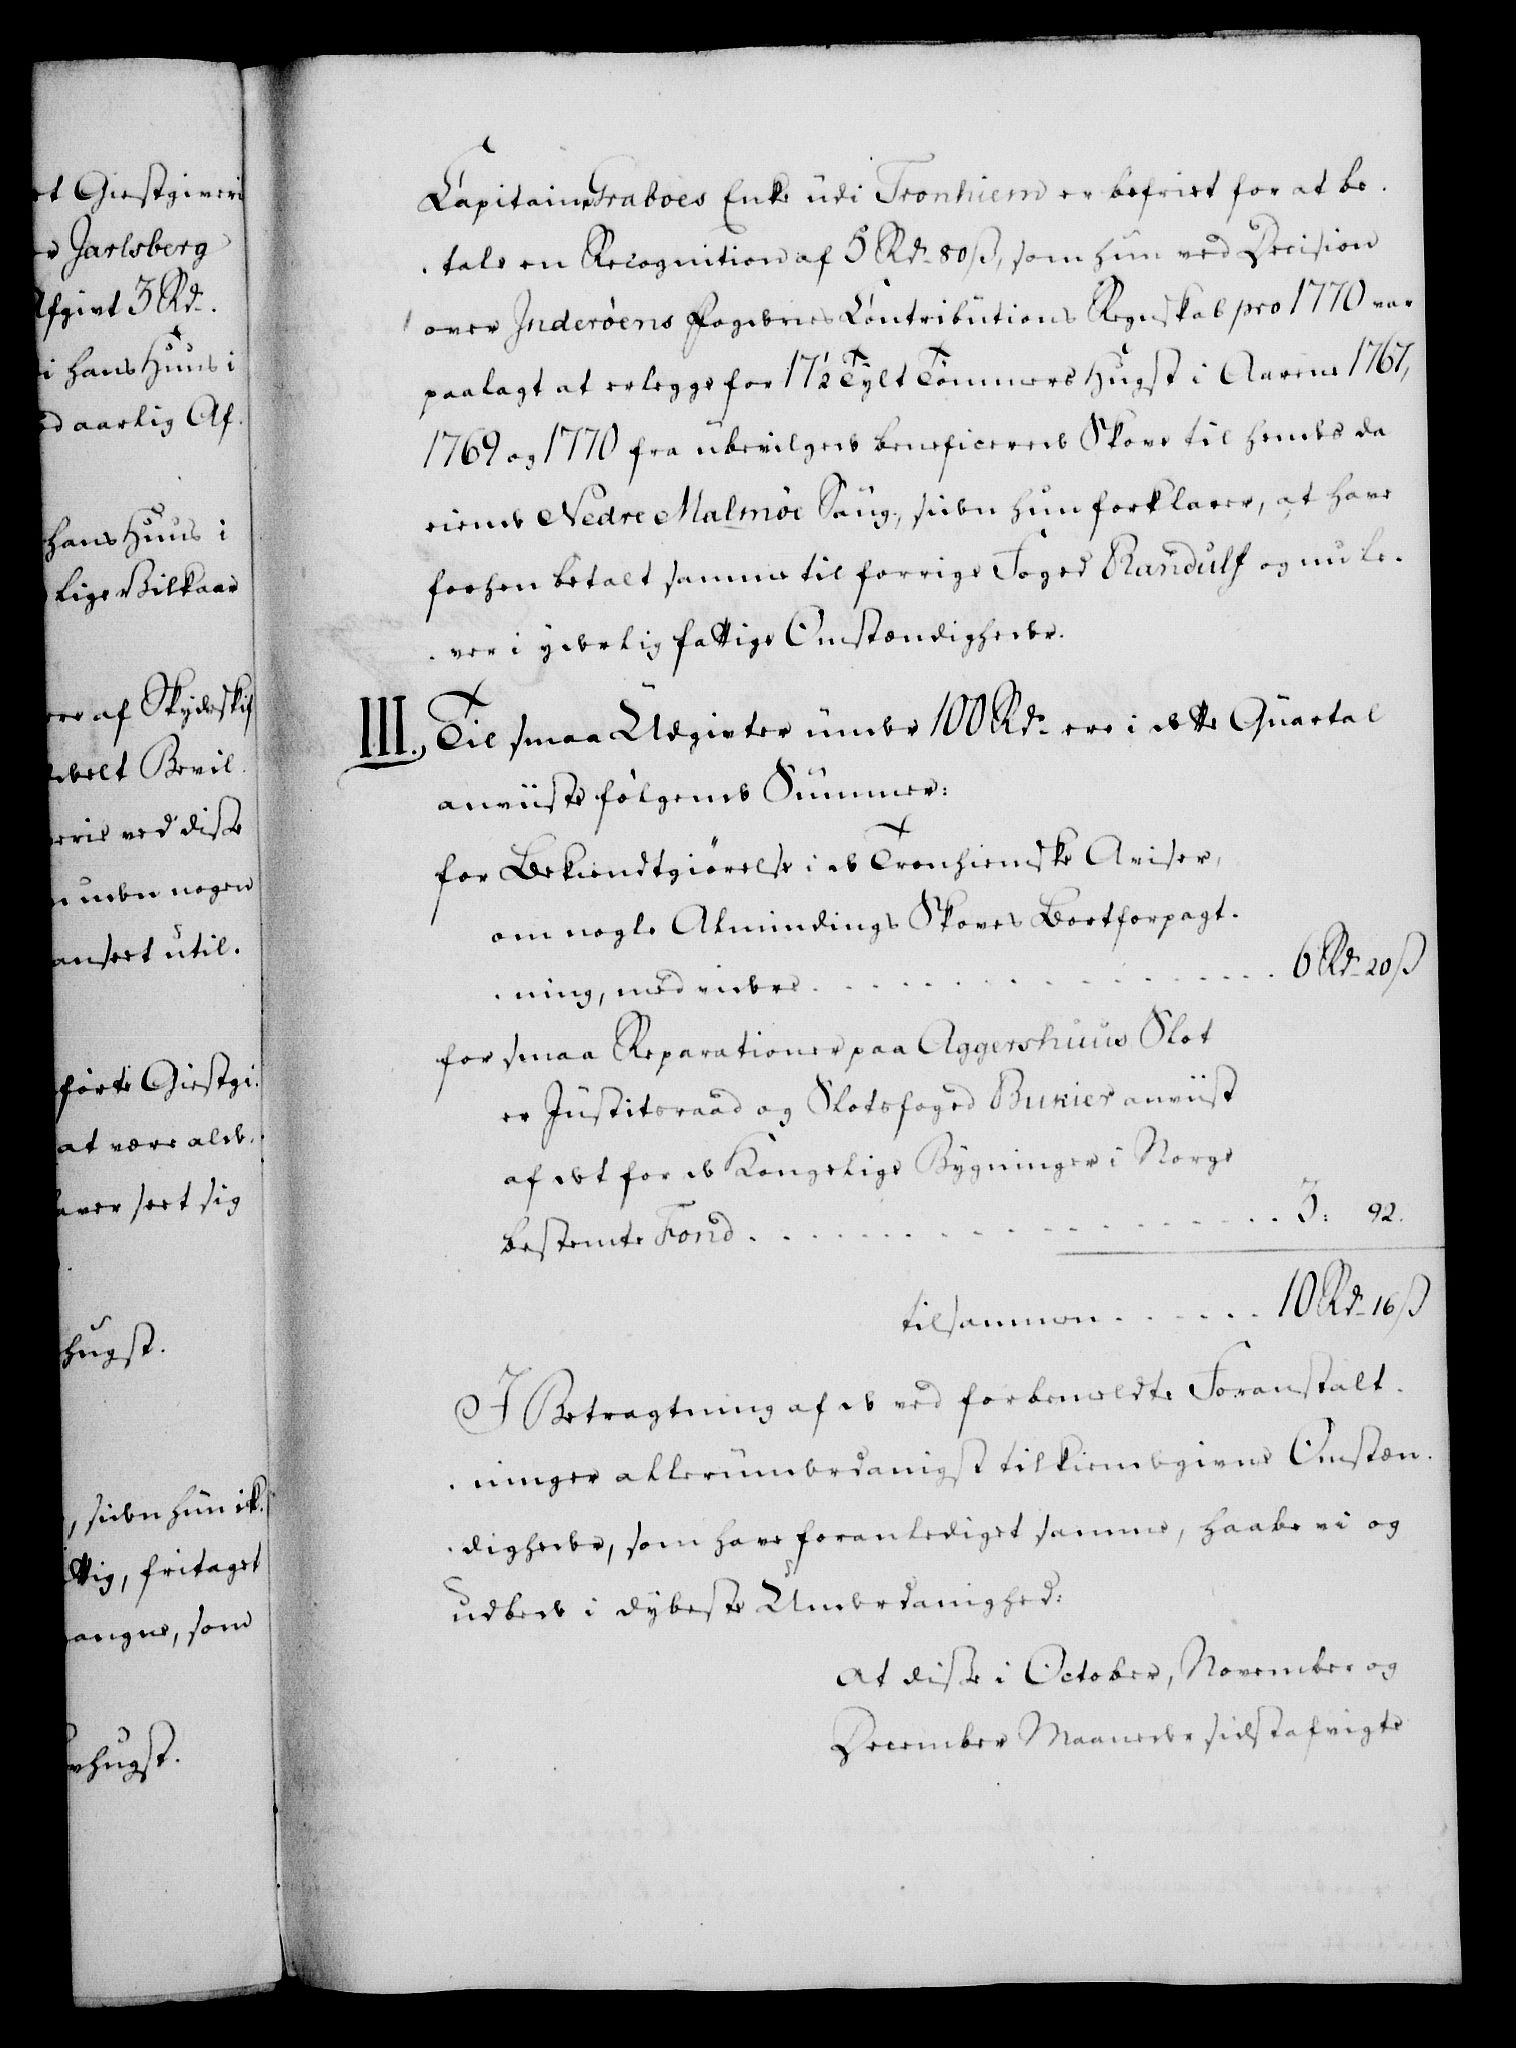 et Giestgiveri
er Jarlsberg
Afgivt 3 Rd.
i hans Huus i
ed aarlig Af-
hans Huus i
lige Vilkaar
ere af Skydsskif
deelt Bevil-
ved disse
uden nogen
anseet util-
førte Giestgi-
at være alde-
aver seet sig
hugst.
, siden hun ik-
ttig, fritaget
gangne, som
vhugst.
Capitain Graboes Enke udi Tronhiem er befriet for at be-
-tale en Recognition af 5 Rd. 80 ß, som hun ved Decision
over Inderøens Fogderies Contributions Regnskab pro 1770 var
paalagt at erlegge for 17½ Tylt Tømmers Hugst i Aarene 1767,
1769 og 1770 fra ubevilgede beneficerede Skove til hendes da
eiende Nedre Malmøe Saug, siden hun forklarer, at have
forhen betalt samme til forrige Foged Randulf og nu le-
-ver i yderlig fattige Omstændigheder.
III. Til smaa Udgivter under 100 Rd. ere i dette Quartal
anviiste følgende Summer:
for Bekiendtgiørelse i de Tronhiemske Aviser,
om nogle Almindings Skoves Bortforpagt-
-ning, med videre . . . . . . . . . . . . . . . 6 Rd. 20 ß
for smaa Reparationer paa Aggershuus Slot
er Justitsraad og Slotsfoged Bukier anviist
af det for de Kongelige Bygninger i Norge
bestemte Fond . . . . . . . . . . . . . . . 3: 92.
tilsammen . . . . . . 10 Rd. 16 ß
I Betragtning af de ved forbemeldte Foranstalt-
-ninger allerunderdanigst tilkiendegivne Omstæn-
-digheder, som have foranlediget samme, haabe vi og
udbede i dybeste Underdanighed:
at disse i October, November og
December Maaneder sidstafvigte